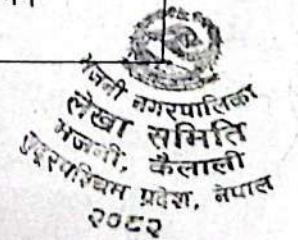 भजनी नगरपालिका
लेखा समिति
भजनी, कैलाली
सुदूरपश्चिम प्रदेश, नेपाल
२०८२